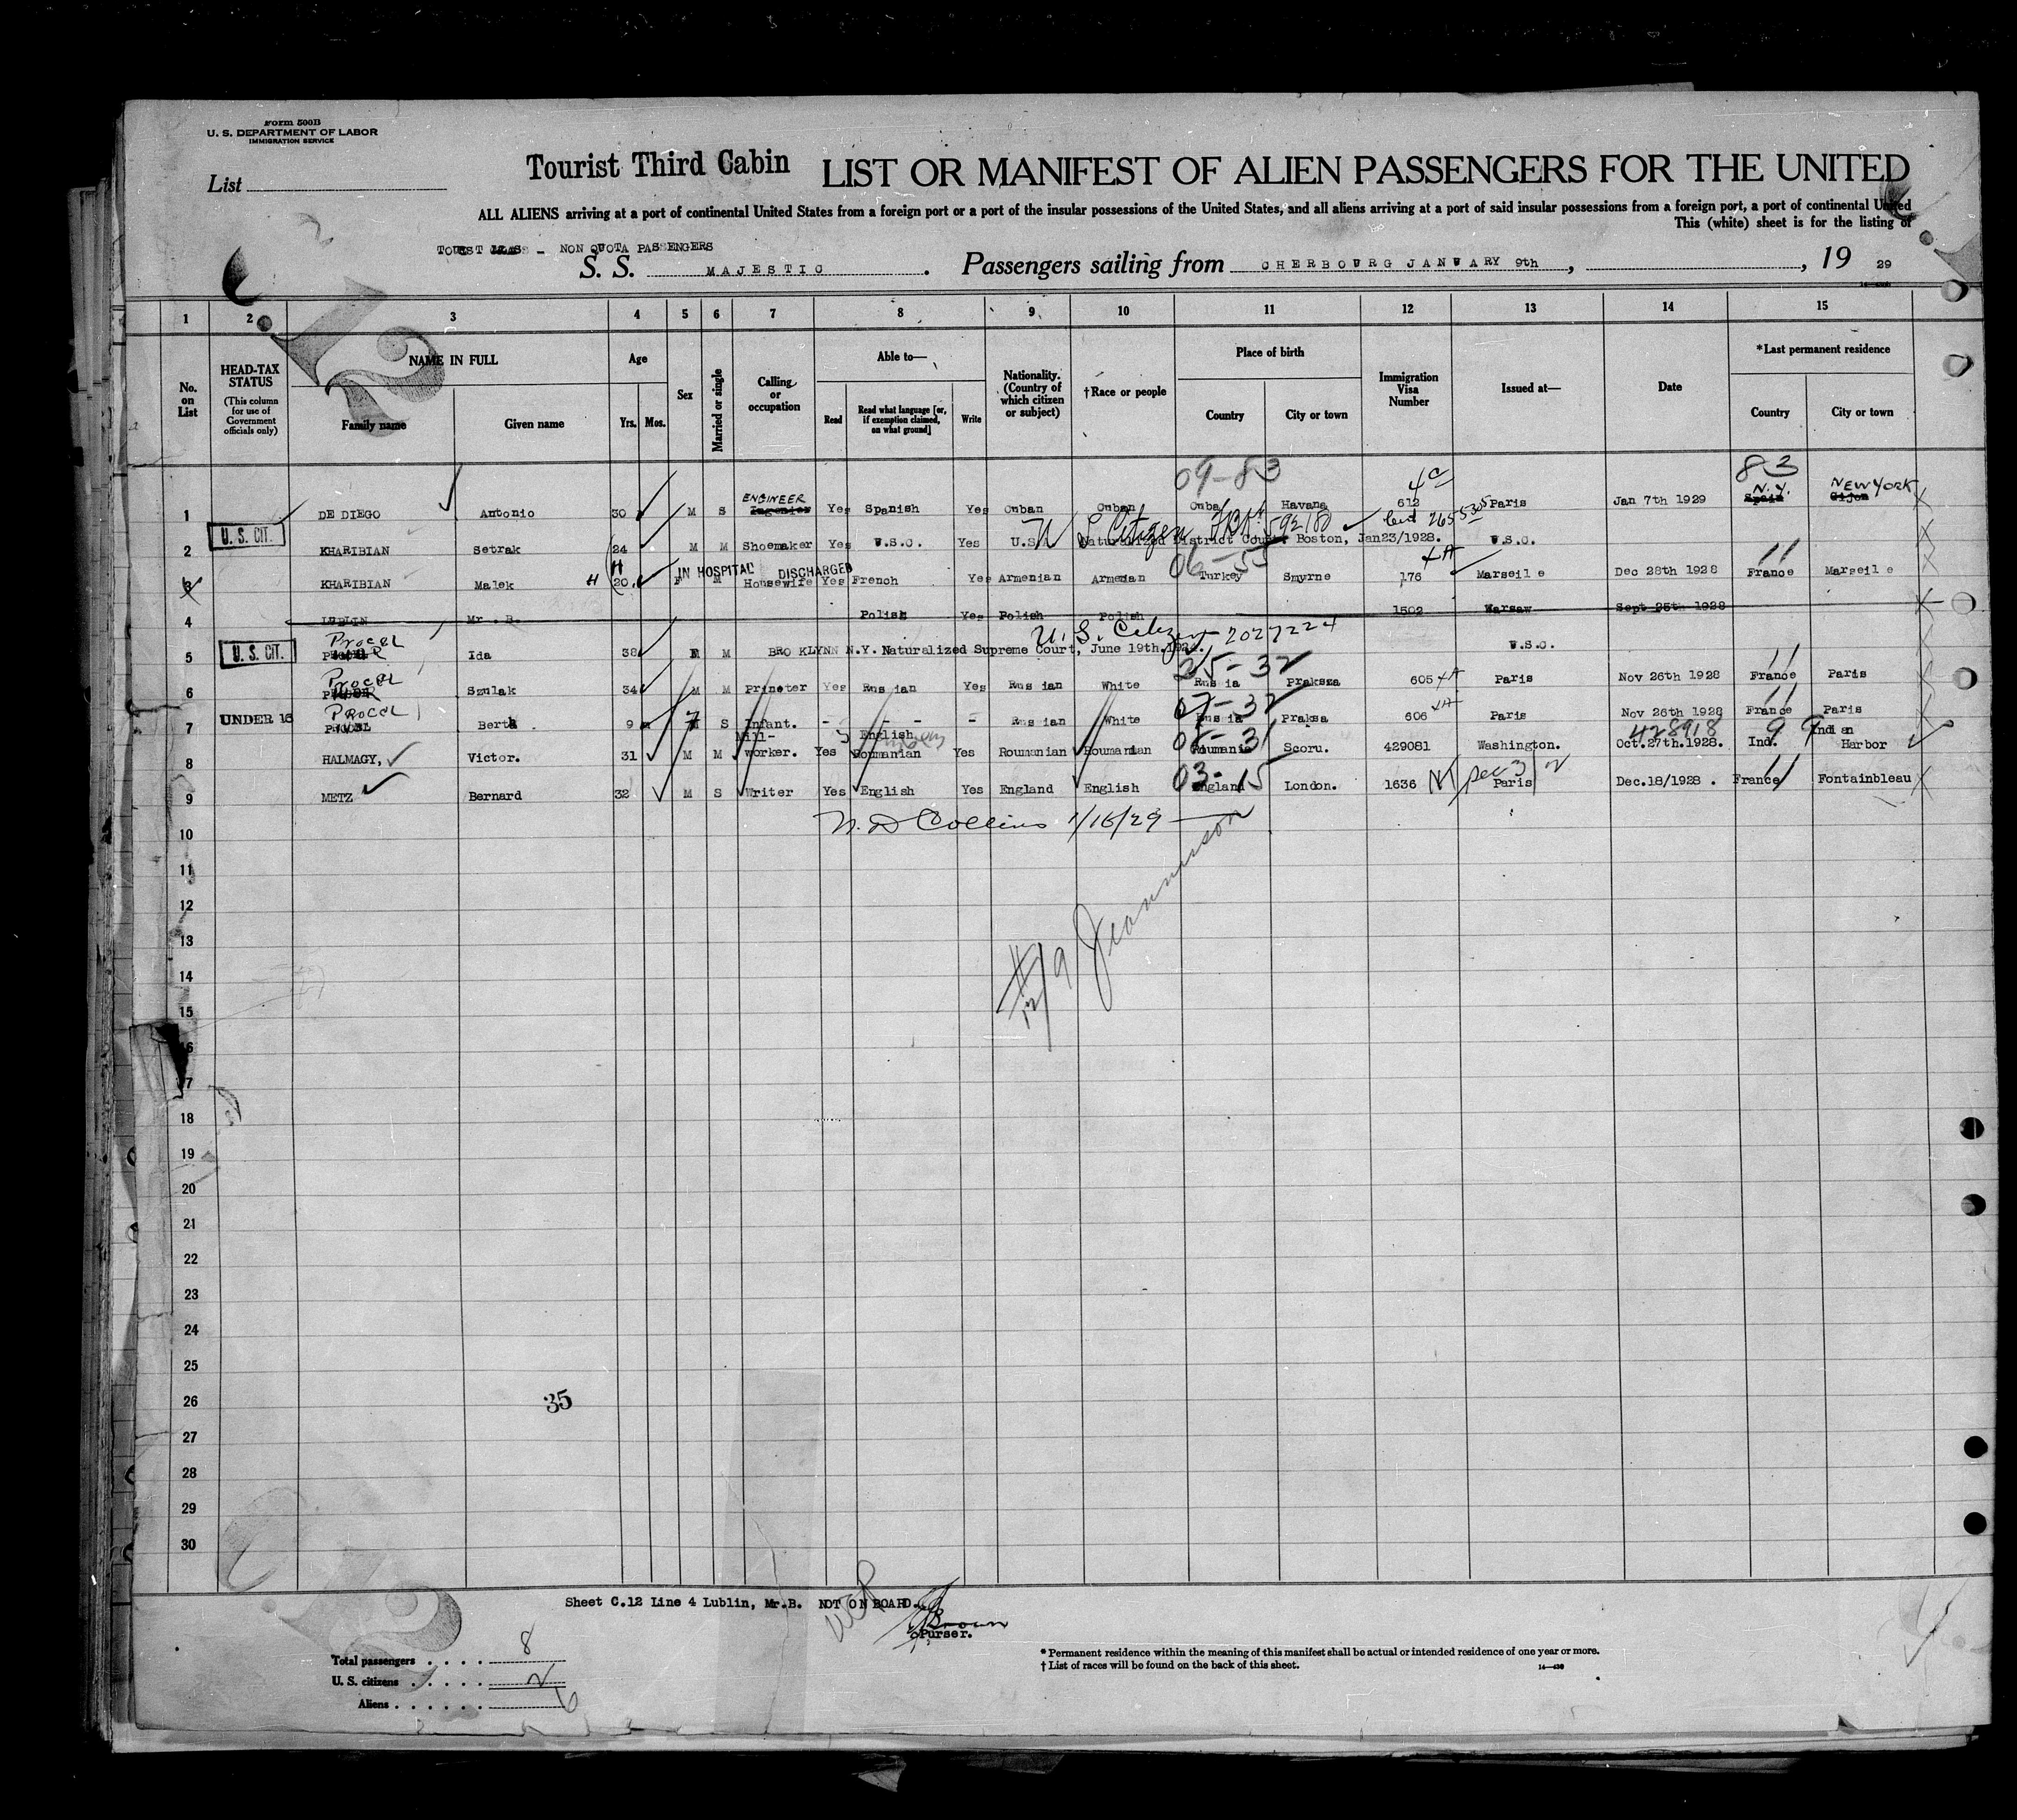 Form 500B
U. S. DEPARTMENT OF LABOR
IMMIGRATION SERVICE
List
Tourist Third Cabin LIST OR MANIFEST OF ALIEN PASSENGERS FOR THE UNITED
ALL ALIENS arriving at a port of continental United States from a foreign port or a port of the insular possessions of the United States, and all aliens arriving at a port of said insular possessions from a foreign port, a port of continental United
This (white) sheet is for the listing of
NON QUOTA PASSENGERS
S. S. MAJESTIC. Passengers sailing from CHERBOURG JANUARY 9th, , 19 29
1 2 3 4 5 6 7 8 9 10 11 12 13 14 15
No. on List
HEAD-TAX STATUS (This column for use of Government officials only)
NAME IN FULL Family name Given name
Age Yrs. Mos.
Sex
Married or single
Calling or occupation
Able to— Read Read what language [or, if exemption claimed, on what ground] Write
Nationality. (Country of which citizen or subject)
†Race or people
Place of birth Country City or town
Immigration Visa Number
Issued at—
Date
*Last permanent residence Country City or town
09-83 83
1 DE DIEGO Antonio 30 M S ENGINEER Ingenier Yes Spanish Yes Cuban Cuban Cuba Havana 612 Paris Jan 7th 1929 Spain N.Y. Gijon NEW YORK
U. S. CIT.
2 KHARIBIAN Setrak 24 M M Shoemaker Yes U.S.C. Yes U.S. Naturalized District Court Boston, Jan 23/1928. U.S.C.
IN HOSPITAL DISCHARGED 06-55
3 KHARIBIAN Malek H 20 F M Housewife Yes French Yes Armenian Armenian Turkey Smyrne 176 Marseile Dec 28th 1928 France Marseile
4 LUBLIN Mr. B. Polish Yes Polish Polish 1502 Warsaw Sept 25th 1928
U. S. Citizen 2027224
U. S. CIT.
5 Procel Ida 38 F M BROOKLYNN N.Y. Naturalized Supreme Court, June 19th. U.S.C.
25-32
6 Procel Szulak 34 M M Printer Yes Russian Yes Russian White Russia Praksza 605 Paris Nov 26th 1928 France Paris
07-32
UNDER 16
7 PROCEL Berta 9 S Infant. - - - - Russian White Russia Praksa 606 Paris Nov 26th 1928 France Paris
428918
8 HALMAGY, Victor. 31 M M Mill-worker. Yes English Roumanian Yes Roumanian Roumanian Roumania Scoru. 429081 Washington. Oct.27th.1928. Ind. Indian Harbor
03-15
9 METZ Bernard 32 M S Writer Yes English Yes England English England London. 1636 Paris Dec.18/1928. France Fontainbleau
N. D Collins 1/16/29
10
11
12
13
14
15
16
17
18
19
20
21
22
23
24
25
26
35
27
28
29
30
Sheet C.12 Line 4 Lublin, Mr.B. NOT ON BOARD.
Brown
Purser.
Total passengers . . . . 8
U. S. citizens . . . . . 2
Aliens . . . . . . 6
* Permanent residence within the meaning of this manifest shall be actual or intended residence of one year or more.
† List of races will be found on the back of this sheet.